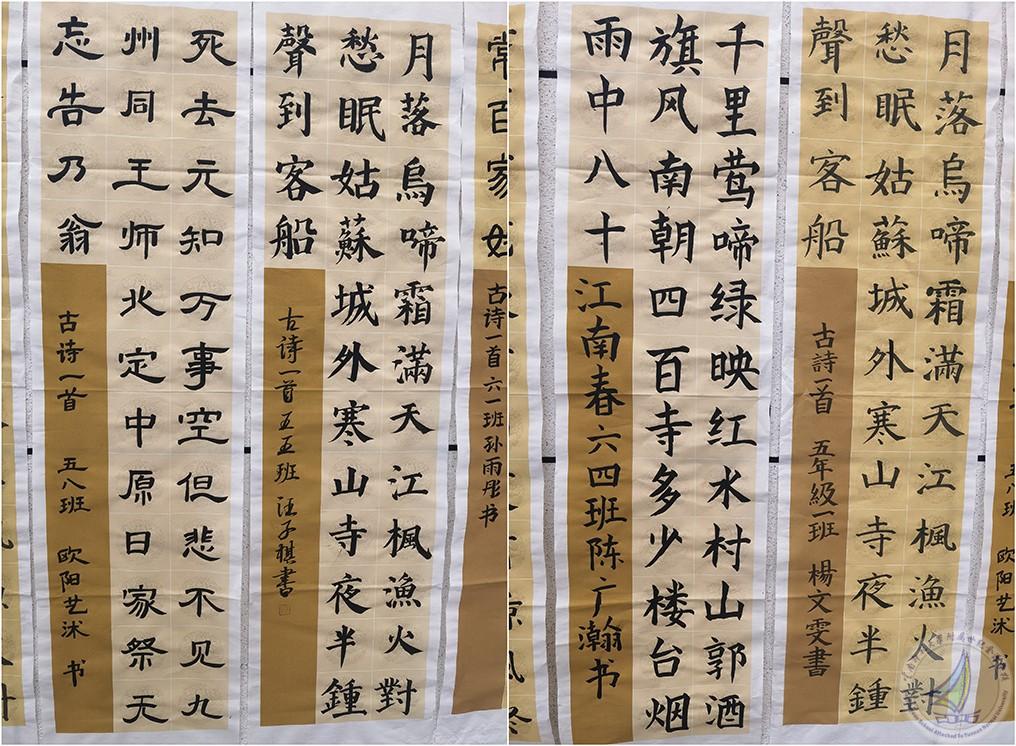 死去元知万事空但悲不见九
州同王师北定中原日家祭无
忘告乃翁
古诗一首 五八班 欧阳艺沭 书
月落烏啼霜滿天江楓漁火對
愁眠姑蘇城外寒山寺夜半鍾
聲到客船
古诗一首 五五班 汪子祺書
常百家姓
古诗一首六一班孙雨彤书
千里莺啼绿映红水村山郭酒
旗风南朝四百寺多少楼台烟
雨中八十
江南春六四班陈广瀚书
月落烏啼霜滿天江楓漁火對
愁眠姑蘇城外寒山寺夜半鍾
聲到客船
古詩一首 五年級一班 楊文雯書
五八班 欧阳艺沭 书